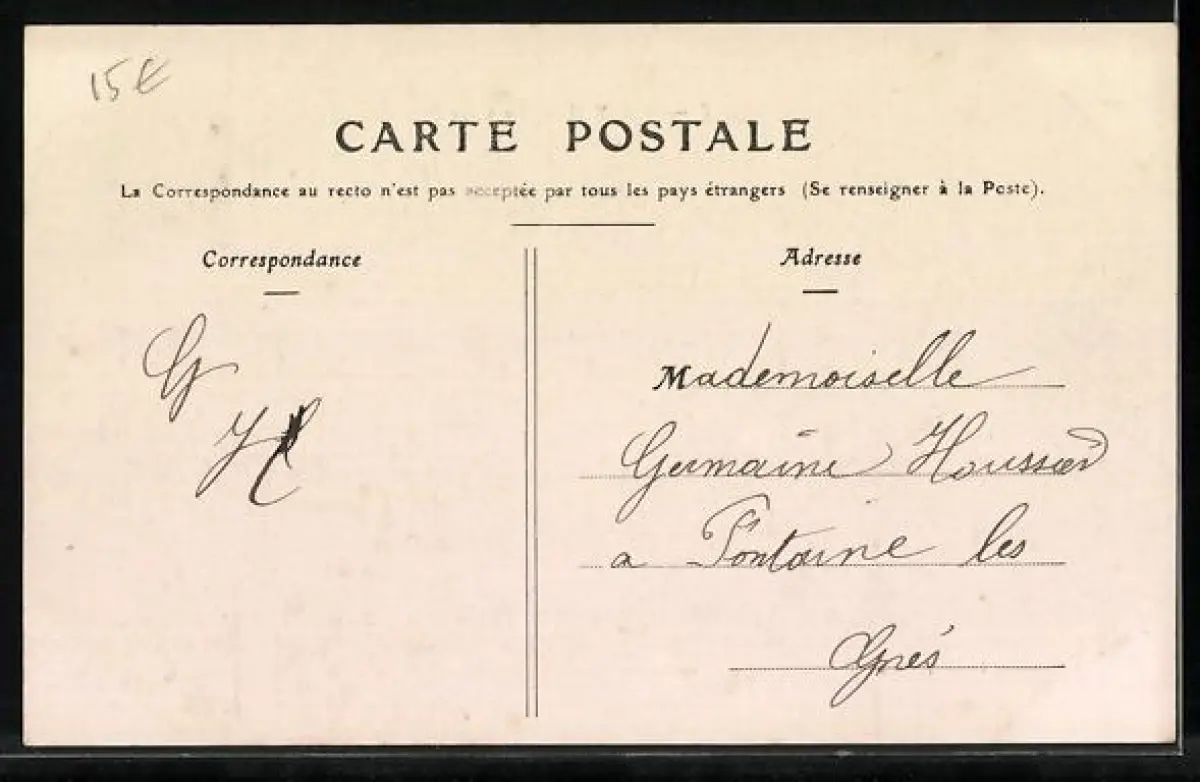 15€
CARTE POSTALE
La Correspondance au recto n'est pas acceptée par tous les pays étrangers (Se renseigner à la Poste).
Correspondance
Adresse
G
H
Mademoiselle
Germaine
a Fontaine les
Grés